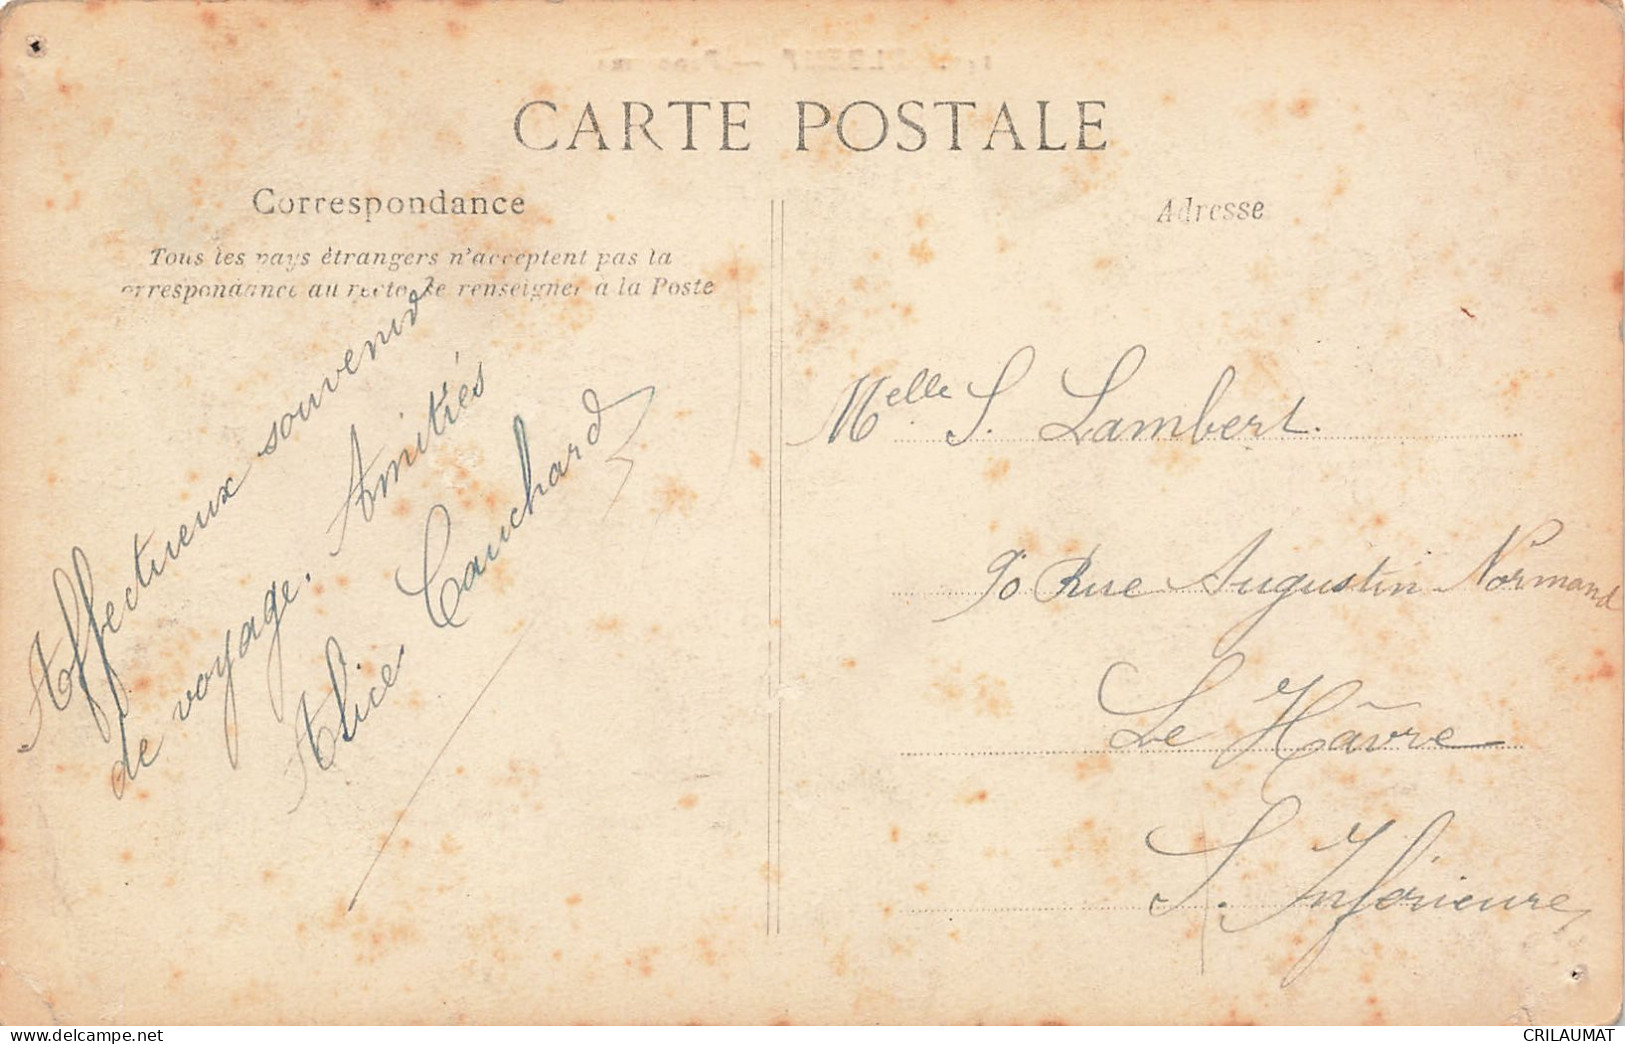 CARTE POSTALE
Correspondance
Tous les pays étrangers n'acceptent pas la
orrespondance au recto. Se renseigner à la Poste
Affectueux souvenir
de voyage. Amitiés
Alice Cauchard
Adresse
Melle S. Lambert.
90 Rue Augustin Normand
Le Hâvre
S. Inférieure
CRILAUMAT